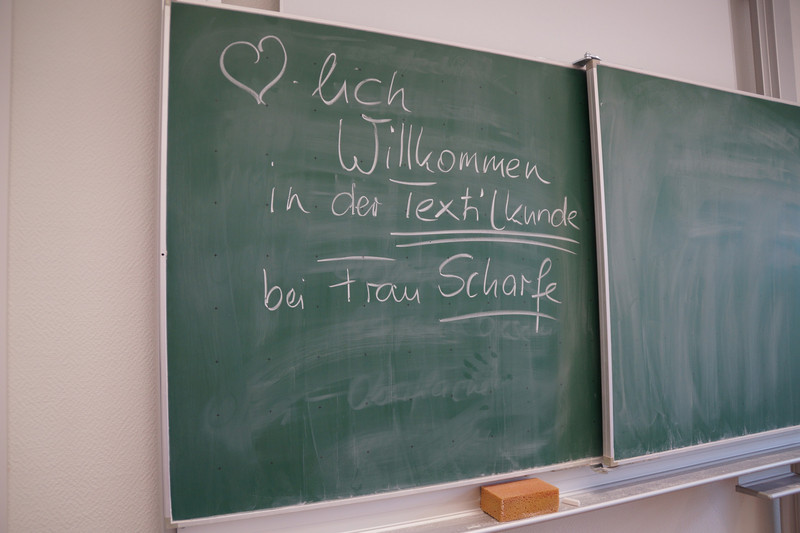 ♡-lich
Willkommen
in der Textilkunde
bei Frau Scharfe